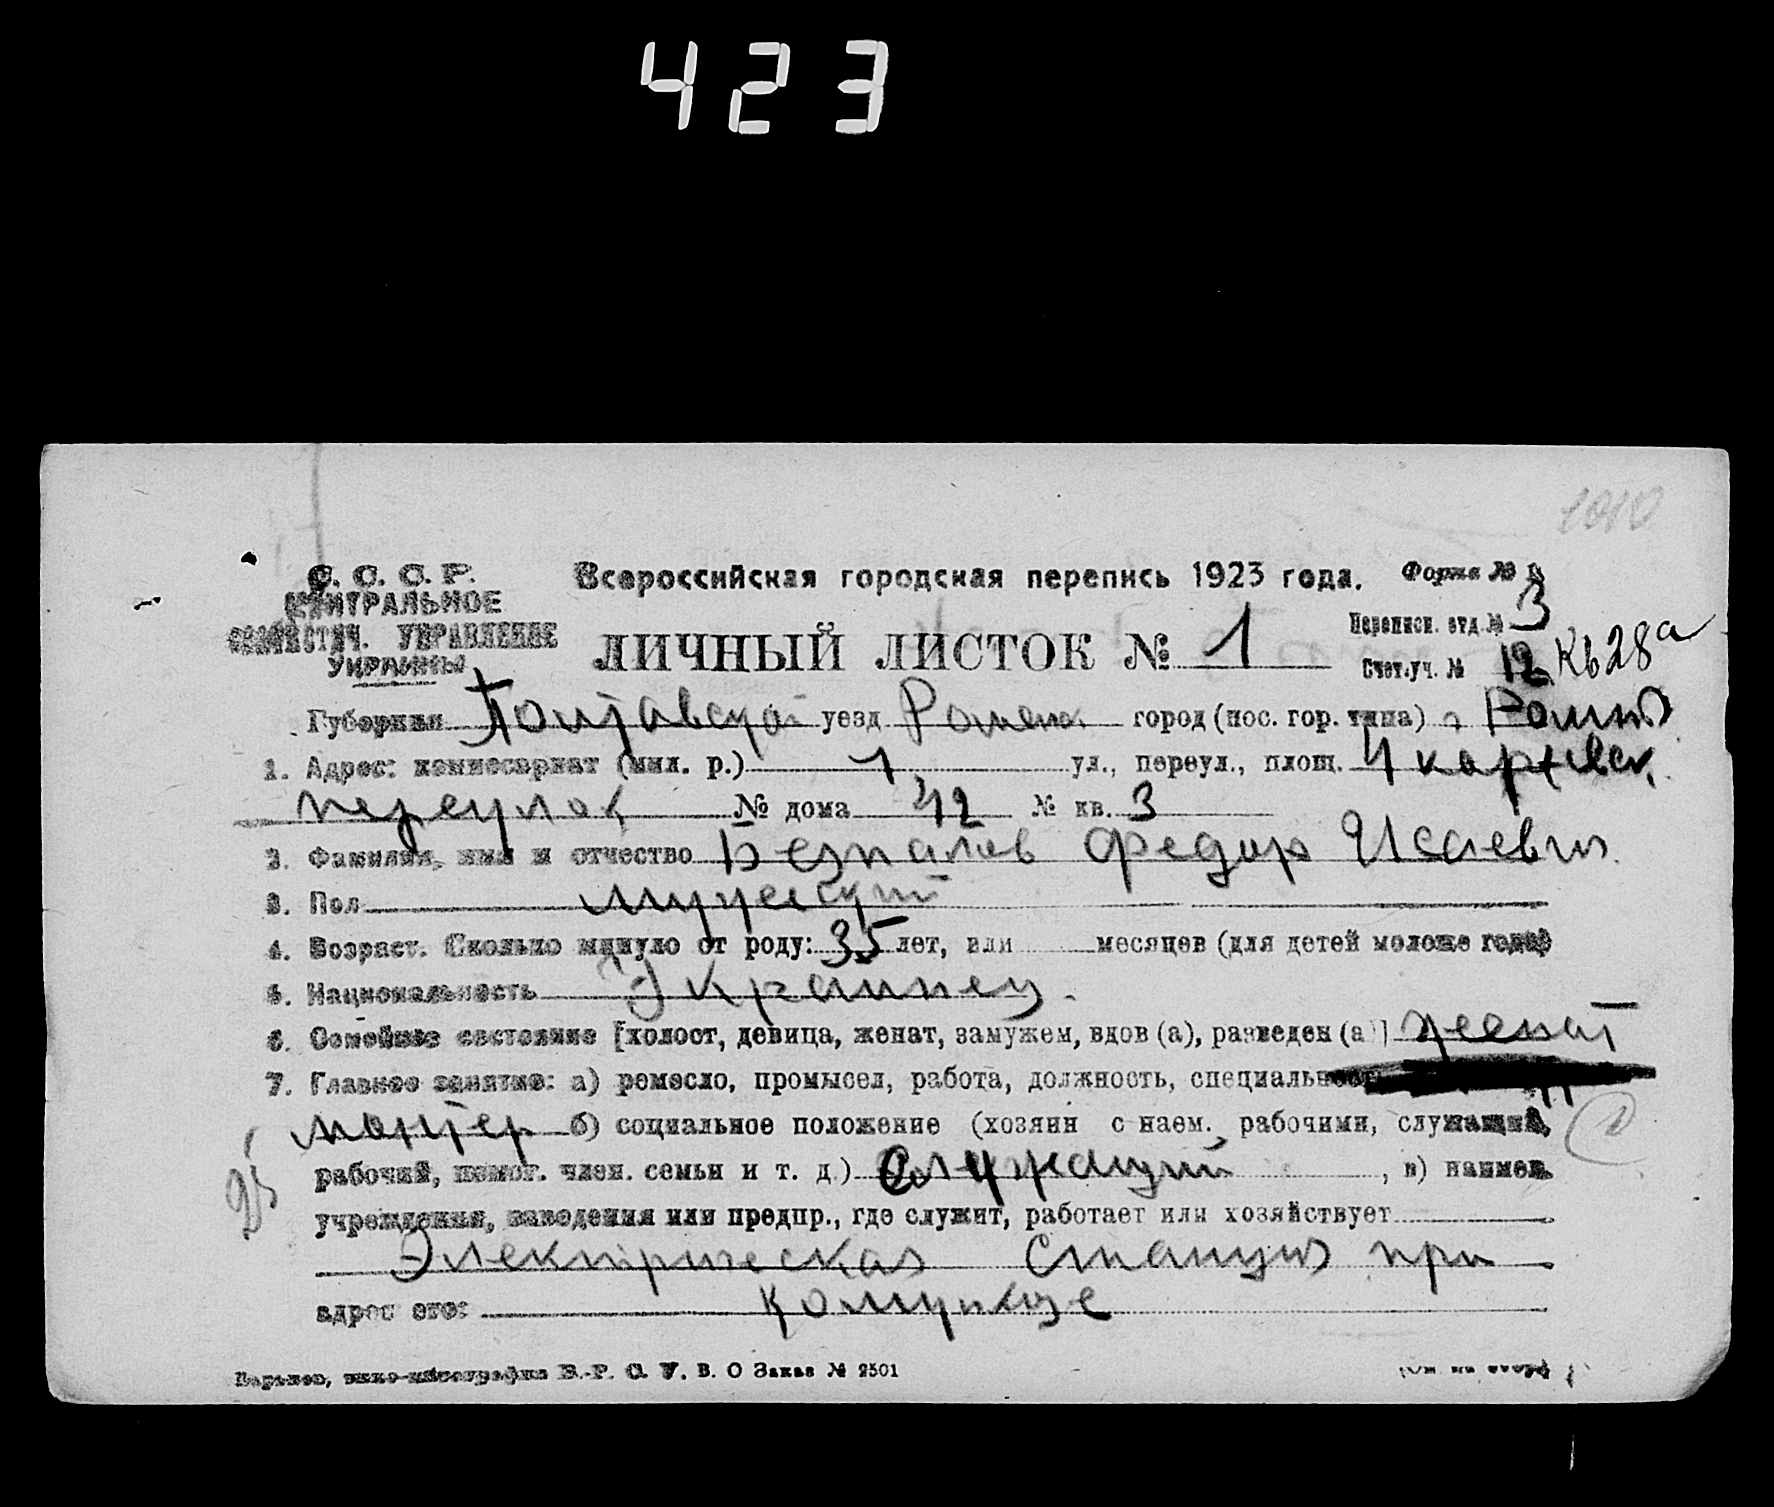 423
1010
С. С. С. Р.
ЦЕНТРАЛЬНОЕ
СТАТИСТИЧ. УПРАВЛЕНИЕ
УКРАИНЫ
Всероссийская городская перепись 1923 года.
Форма №
ЛИЧНЫЙ ЛИСТОК № 1
Переписн. отд. № 3
Счет.уч. № 12 Кв 28а
Губерния Полтавская уезд Ромен город (пос. гор. типа) Ромны
1. Адрес: комиссариат (мил. р.) 1 ул., переул., площ.
переулок № дома 42 № кв. 3
2. Фамилия, имя и отчество Безпалов Федор Исаевич
3. Пол мужеский
4. Возраст. Сколько минуло от роду: 35 лет, или месяцев (для детей моложе года)
5. Национальность Украинец
6. Семейное состояние [холост, девица, женат, замужем, вдов (а), разведен (а)] женат
7. Главное занятие: а) ремесло, промысел, работа, должность, специальность
монтер б) социальное положение (хозяин с наем. рабочими, служащий,
рабочий, помог. член. семьи и т. д.) Служащий, в) наимен.
учреждения, заведения или предпр., где служит, работает или хозяйствует
Электрическая Станция при
адрес его: комунхозе
Харьков, В.О Заказ № 2501